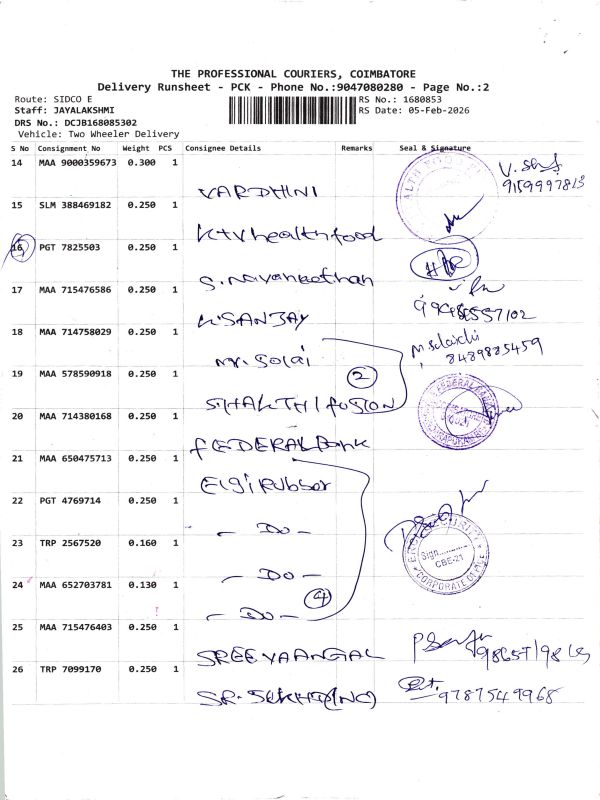 THE PROFESSIONAL COURIERS, COIMBATORE
Delivery Runsheet - PCK - Phone No.:9047080280 - Page No.:2
Route: SIDCO E
RS No.: 1680853
Staff: JAYALAKSHMI
RS Date: 05-Feb-2026
DRS No.: DCJB168085302
Vehicle: Two Wheeler Delivery
S No Consignment No Weight PCS Consignee Details Remarks Seal & Signature
14 MAA 9000359673 0.300 1
VARDHINI
9159997813
15 SLM 388469182 0.250 1
KTV healthfood
16 PGT 7825503 0.250 1
S. Navaneethan
17 MAA 715476586 0.250 1
K. SANJAY
18 MAA 714758029 0.250 1
Mr. Solai
8489885459
19 MAA 578590918 0.250 1
2
SHAKTHI fUSION
20 MAA 714380168 0.250 1
FEDERAL Bank
21 MAA 650475713 0.250 1
Elgi Rubber
22 PGT 4769714 0.250 1
- Do -
23 TRP 2567520 0.160 1
- Do -
Sign
CBE-21
24 MAA 652703781 0.130 1
4
- Do -
25 MAA 715476403 0.250 1
SREE VAANGAL
26 TRP 7099170 0.250 1
9787549968